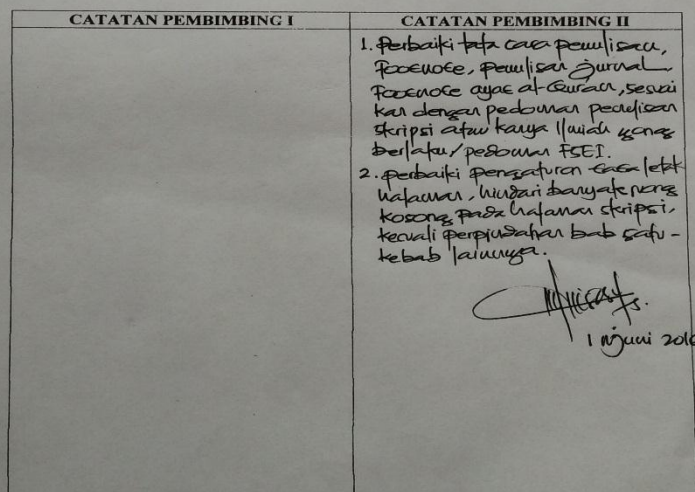 CATATAN PEMBIMBING I
CATATAN PEMBIMBING II
1. Perbaiki tata cara penulisan,
Footnote, penulisan jurnal
Footnote ayat al-Quran, sesuai
kan dengan pedoman penulisan
skripsi atau karya Ilmiah yang
berlaku/pedoman FSEI.
2. perbaiki pengaturan tata letak
halaman, hindari banyak ruang
kosong pada halaman skripsi,
kecuali perpindahan bab satu-
kebab lainnya.
1 Juni 201